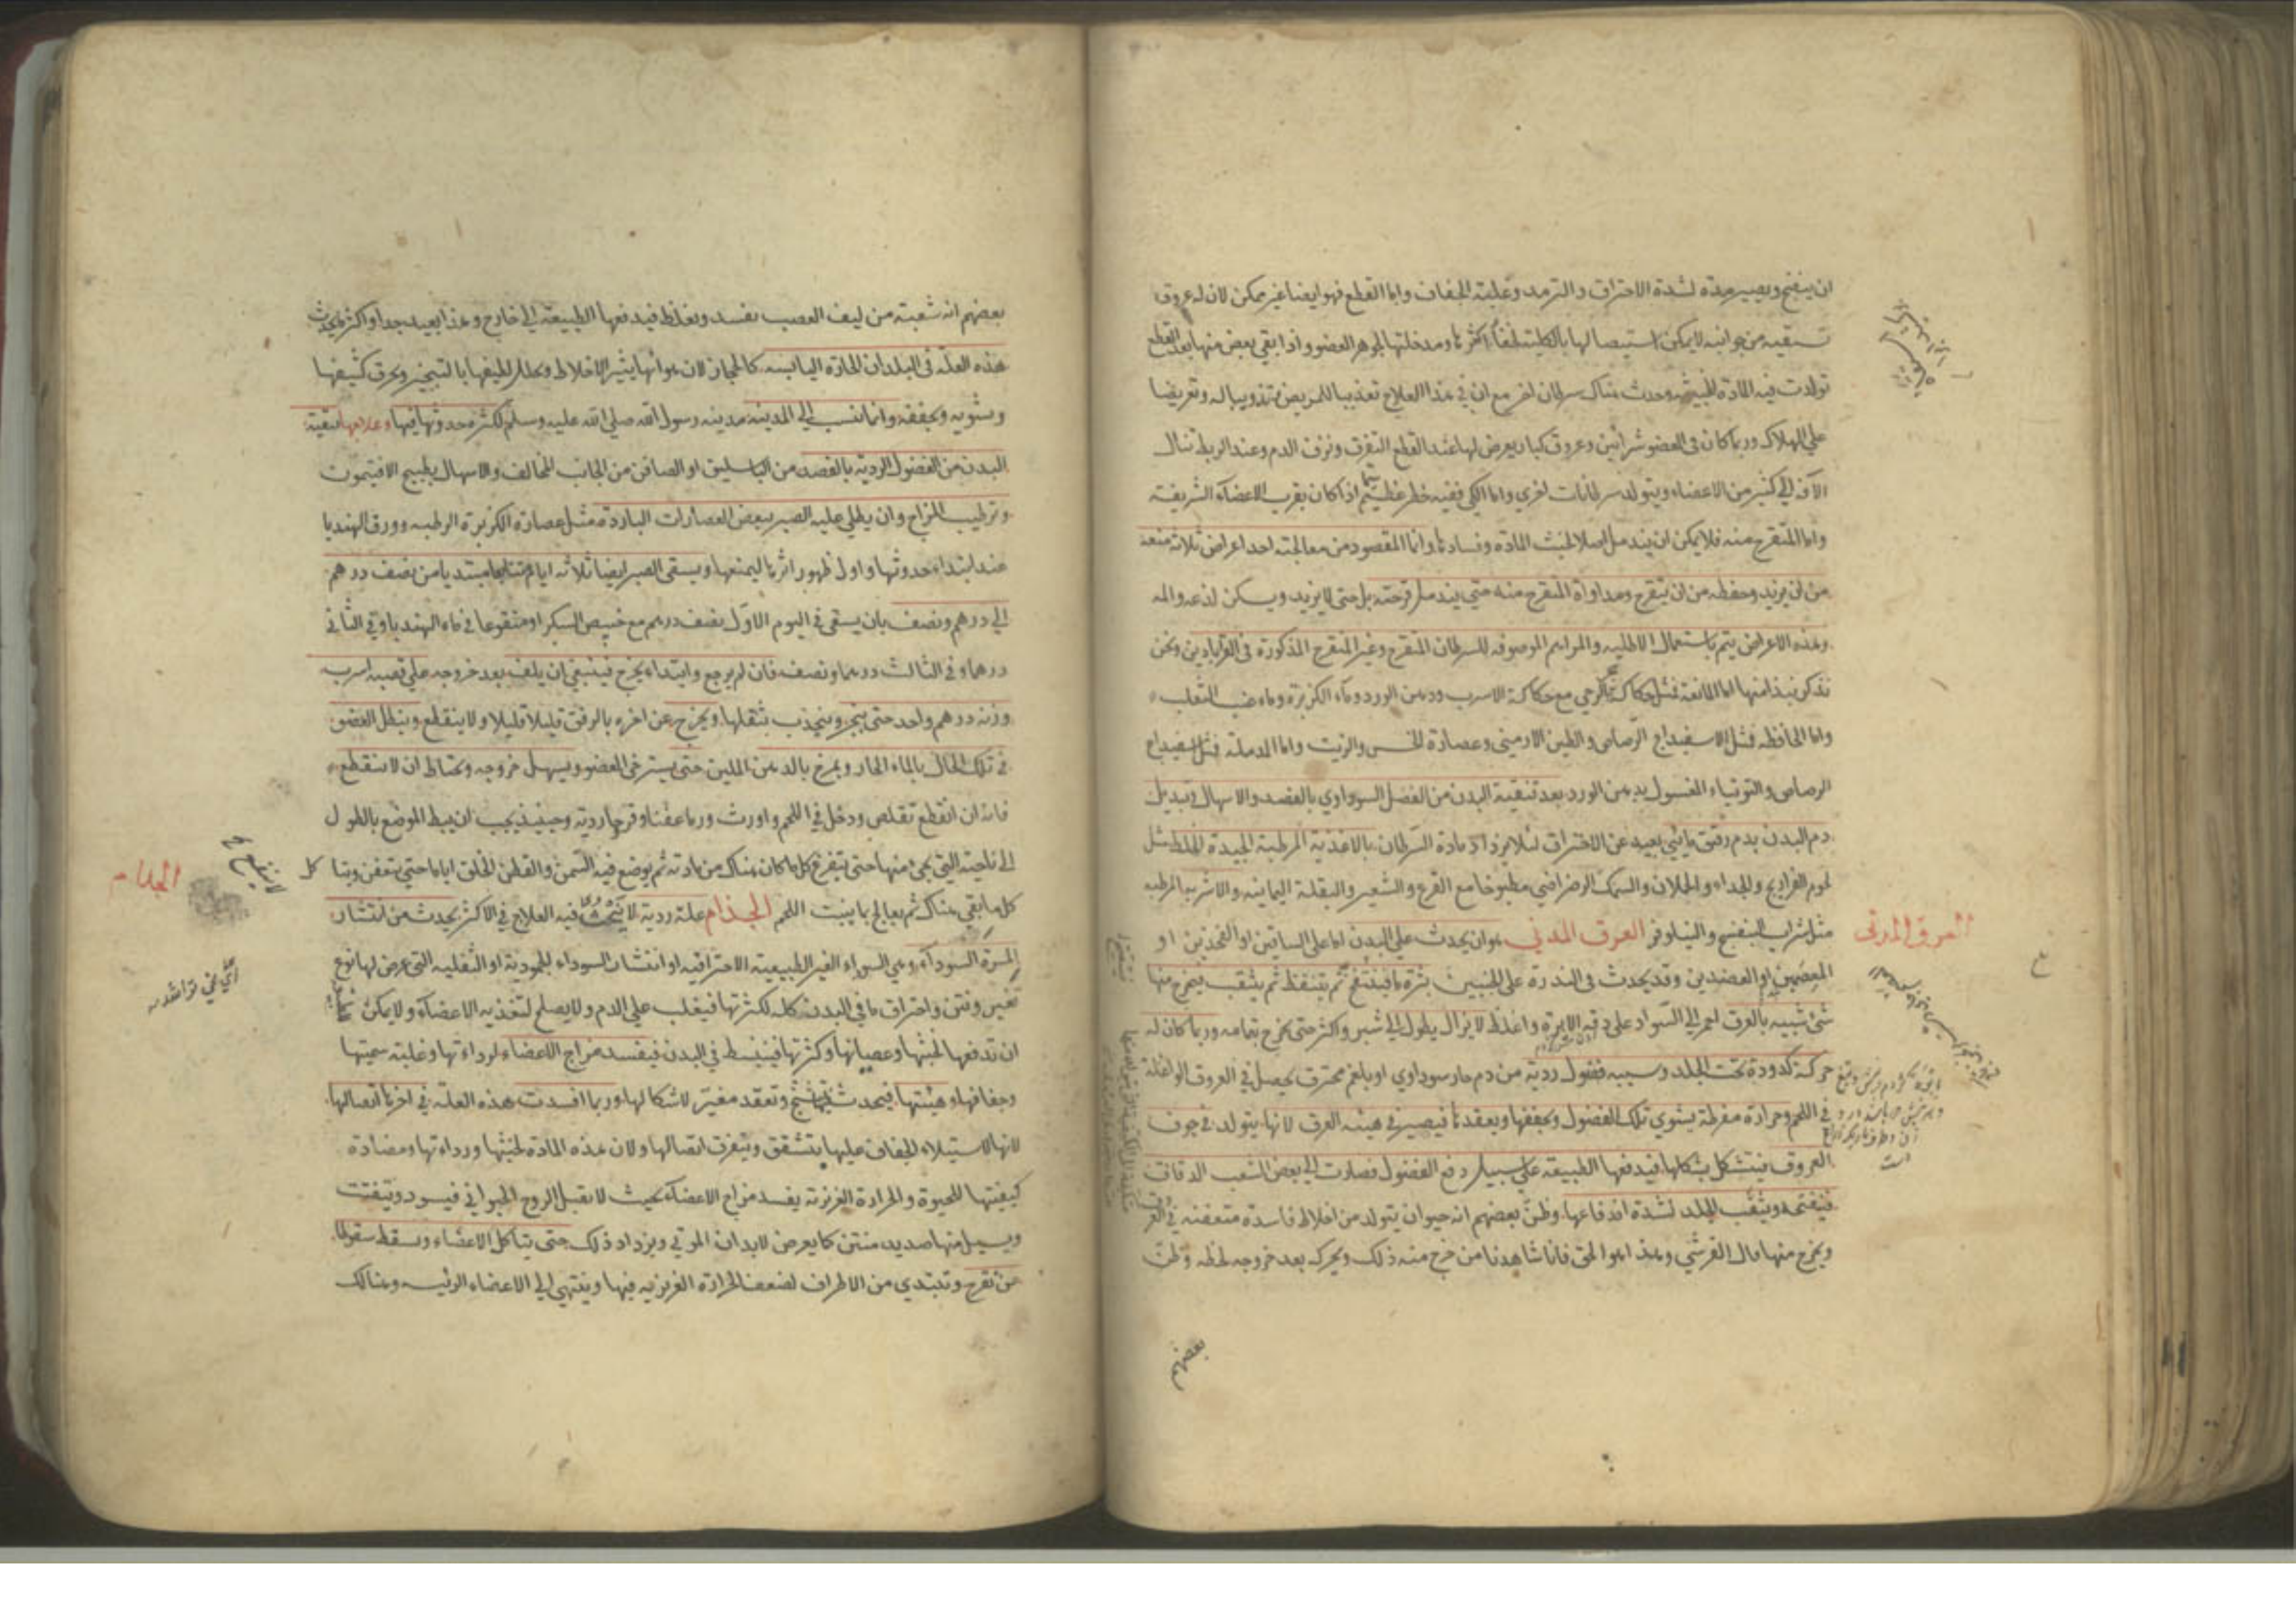 ان ينضج ويصير مدة لشدة الاحتراق والترمد وغلبة الجفاف واما القطع فهو ايضا غير ممكن لان له عروق
تسقيه من جوانبه لا يمكن استيصالها بالكلية لخفاء اكثرها ومداخلتها لجوهر العضو واذا بقي بعض منها بعد القطع
تولدت فيه المادة الخبيثة وحدث هناك سرطان اخر مع ان في هذا العلاج تعذيبا للمريض وتعريضا
علي الهلاك وربما كان في العضو شرائين وعروق كبار يعرض لها عند القطع النزف ونزف الدم وعند الربط تنال
الآفة الي كثير من الاعضاء ويتولد سرطانات اخري واما الكي ففيه خطر عظيم سيما اذا كان بقرب الاعضآء الشريفة
واما المتقرح منه فلا يمكن ان يندمل اصلا لخبث المادة وفسادها وانما المقصود من معالجته احد اعراض ثلاثة منعه
من ان يزيد وحفظه من ان يتقرح ومداواة المتقرح منه حتي يندمل قرحته بل حتي لا يزيد ويسكن لذعه والمه
وهذه الاعراض يتم باستعمال الاطليه والمراهم الموصوفه للسرطان المتقرح وغير المتقرح المذكورة في القرابادين ونحن
نذكر نبذا منها اما المانعة فمثل حكاكة الرحي مع حكاكة الاسرب ودهن الورد وماء الكزبرة وماء عنب الثعلب
واما الحافظه فمثل الاسفيداج الرصاص والطين الارمني وعصارة الخس والزيت واما المدملة فمثل اسفيداج
الرصاص والتوتياء المغسول بدهن الورد بعد تنقية البدن من الفضل السوداوي بالفصد والاسهال وتبديل
دم البدن بدم رقيق مائي بعيد عن الاحتراق لئلا يزداد مادة السرطان بالاغذية المرطبة الجيدة الخلط مثل
لحوم الفراريج والجداء والحملان والسمك الرضراضي مطبوخا مع القرع والشعير والبقلة اليمانيه والاشربه المرطبه
مثل شراب البنفسج والنيلوفر العرق المدني هو ان يحدث علي البدن اما علي الساقين او الفخذين او
العرق المدني
المعصمين او العضدين وقد يحدث في الندرة علي الجنبين بثرة ما فينتفخ ثم يتنفط ثم يثقب يخرج منها
شئ شبيه بالعرق احمر الي السواد علي دقه الابرة واغلظ لا يزال يطول الي شبر واكثر حتي يخرج بتمامه وربما كان له
حركة كدودة تحت الجلد وسببه فضول ردية من دم حار سوداوي او بلغم محترق يحصل في العروق
في اللحم وحرارة مفرطة يشوي تلك الفضول ويجففها ويعقدها فيصير في هيئه العرق لانها يتولد في جوف
العروق فيتشكل بشكلها فيدفعها الطبيعة علي سبيل دفع الفضول فصارت الي بعض الشعب الدقاق
فيفتحه ويثقب الجلد لشدة اندفاعها وظن بعضهم انه حيوان يتولد من اخلاط فاسدة متعفنه في العرق
ويخرج منها قال القرشي وهذا هو الحق فانا شاهدنا من خرج منه ذلك ويحركه بعد خروجه لحظه وظن
بعضهم
بعضهم انه شعبة من ليف العصب يفسد ويغلظ فيدفعها الطبيعة الي خارج وهذا بعيد جدا واكثر ما يحدث
هذه العلة في البلدان الحارة اليابسه كالحجاز لان هوائها يثير الاخلاط ويحلل لطيفها بالتبخير ويحرق كثيفها
ويشويه ويجففه وانما نسب الي المدينة مدينه رسول الله صلي الله عليه وسلم لكثرة حدوثها فيها وعلاجها تنقية
البدن من الفضول الردية بالفصد من الباسليق او الصافن من الجانب المخالف والاسهال بطبيخ الافتيمون
وترطيب المزاج وان يطلي عليه الصبر ببعض العصارات الباردة مثل عصارة الكزبرة الرطبه وورق الهندبا
عند ابتداء حدوثها واول ظهور اثرها ليمنعها ويسقي الصبر ايضا ثلاثه ايام متتابعا مبتديا من نصف درهم
الي درهم ونصف بان يسقي في اليوم الاول نصف درهم مع خبيص السكر او منقوعا في ماء الهندبا وفي الثاني
درهما وفي الثالث درهما ونصف فان لم يرجع وابتداء يخرج فينبغي ان يلف بعد خروجه علي قصبه اسرب
وزنه درهم واحد حتي ينجر وينجذب بثقلها ويخرج عن اخره بالرفق قليلا قليلا ولا ينقطع وينطل العضو
في تلك الحال بالماء الحار ويمرخ بالدهن الملين حتي يسترخي العضو ويسهل خروجه ويحتاط ان لا ينقطع
فانه ان انقطع تقلص ودخل في اللحم واورث ورما عفنا وقرحا ردية وحينئذ يجب ان يبط الموضع بالطول
الي ناحيته التي يجئ منها حتي يتفرغ كل ما كان هناك من مادته ثم يوضع فيه السمن والقطن الخلق اياما حتي يتعفن ويتا كل
كل ما بقي هناك ثم يعالج بما ينبت اللحم الجذام علة ردية لا ينجع فيه العلاج في الاكثر يحدث من انتشار
الجذام
المرة السودآء وهي السوداء الغير الطبيعية الاحتراقيه او انتشار السوداء الجمودية او الثفلية التي عرض لها نوع
تغير ونتن واحتراق ما في البدن كله لكثرتها فيغلب علي الدم ولا يصلح لتغذيه الاعضآء ولا يمكن
ان تدفعها لخبثها وعصيانها وكثرتها فينبسط في البدن فيفسد مزاج الاعضاء لرداءتها وغلبة سميتها
وجفافها وهيئتها فيحدث تشنج وتعقد مغير لاشكالها وربما افسدت هذه العلة في اخرها اتصالها
لانها لاستيلاء الجفاف عليها يتشقق ويتفرق اتصالها ولان هذه المادة لخبثها ورداءتها ومضادة
كيفيتها للحيوة والحرارة الغريزية يفسد مزاج الاعضآء بحيث لا تقبل الروح الحيواني فيسود ويتفتت
ويسيل منها صديد منتن كما يعرض لابدان الموتي ويزداد ذلك حتي يتاكل الاعضاء ويسقط سقوطا
من تقرح وتبتدي من الاطراف لضعف الحرارة الغريزيه فيها وينتهي الي الاعضاء الرئيسه وهنالك